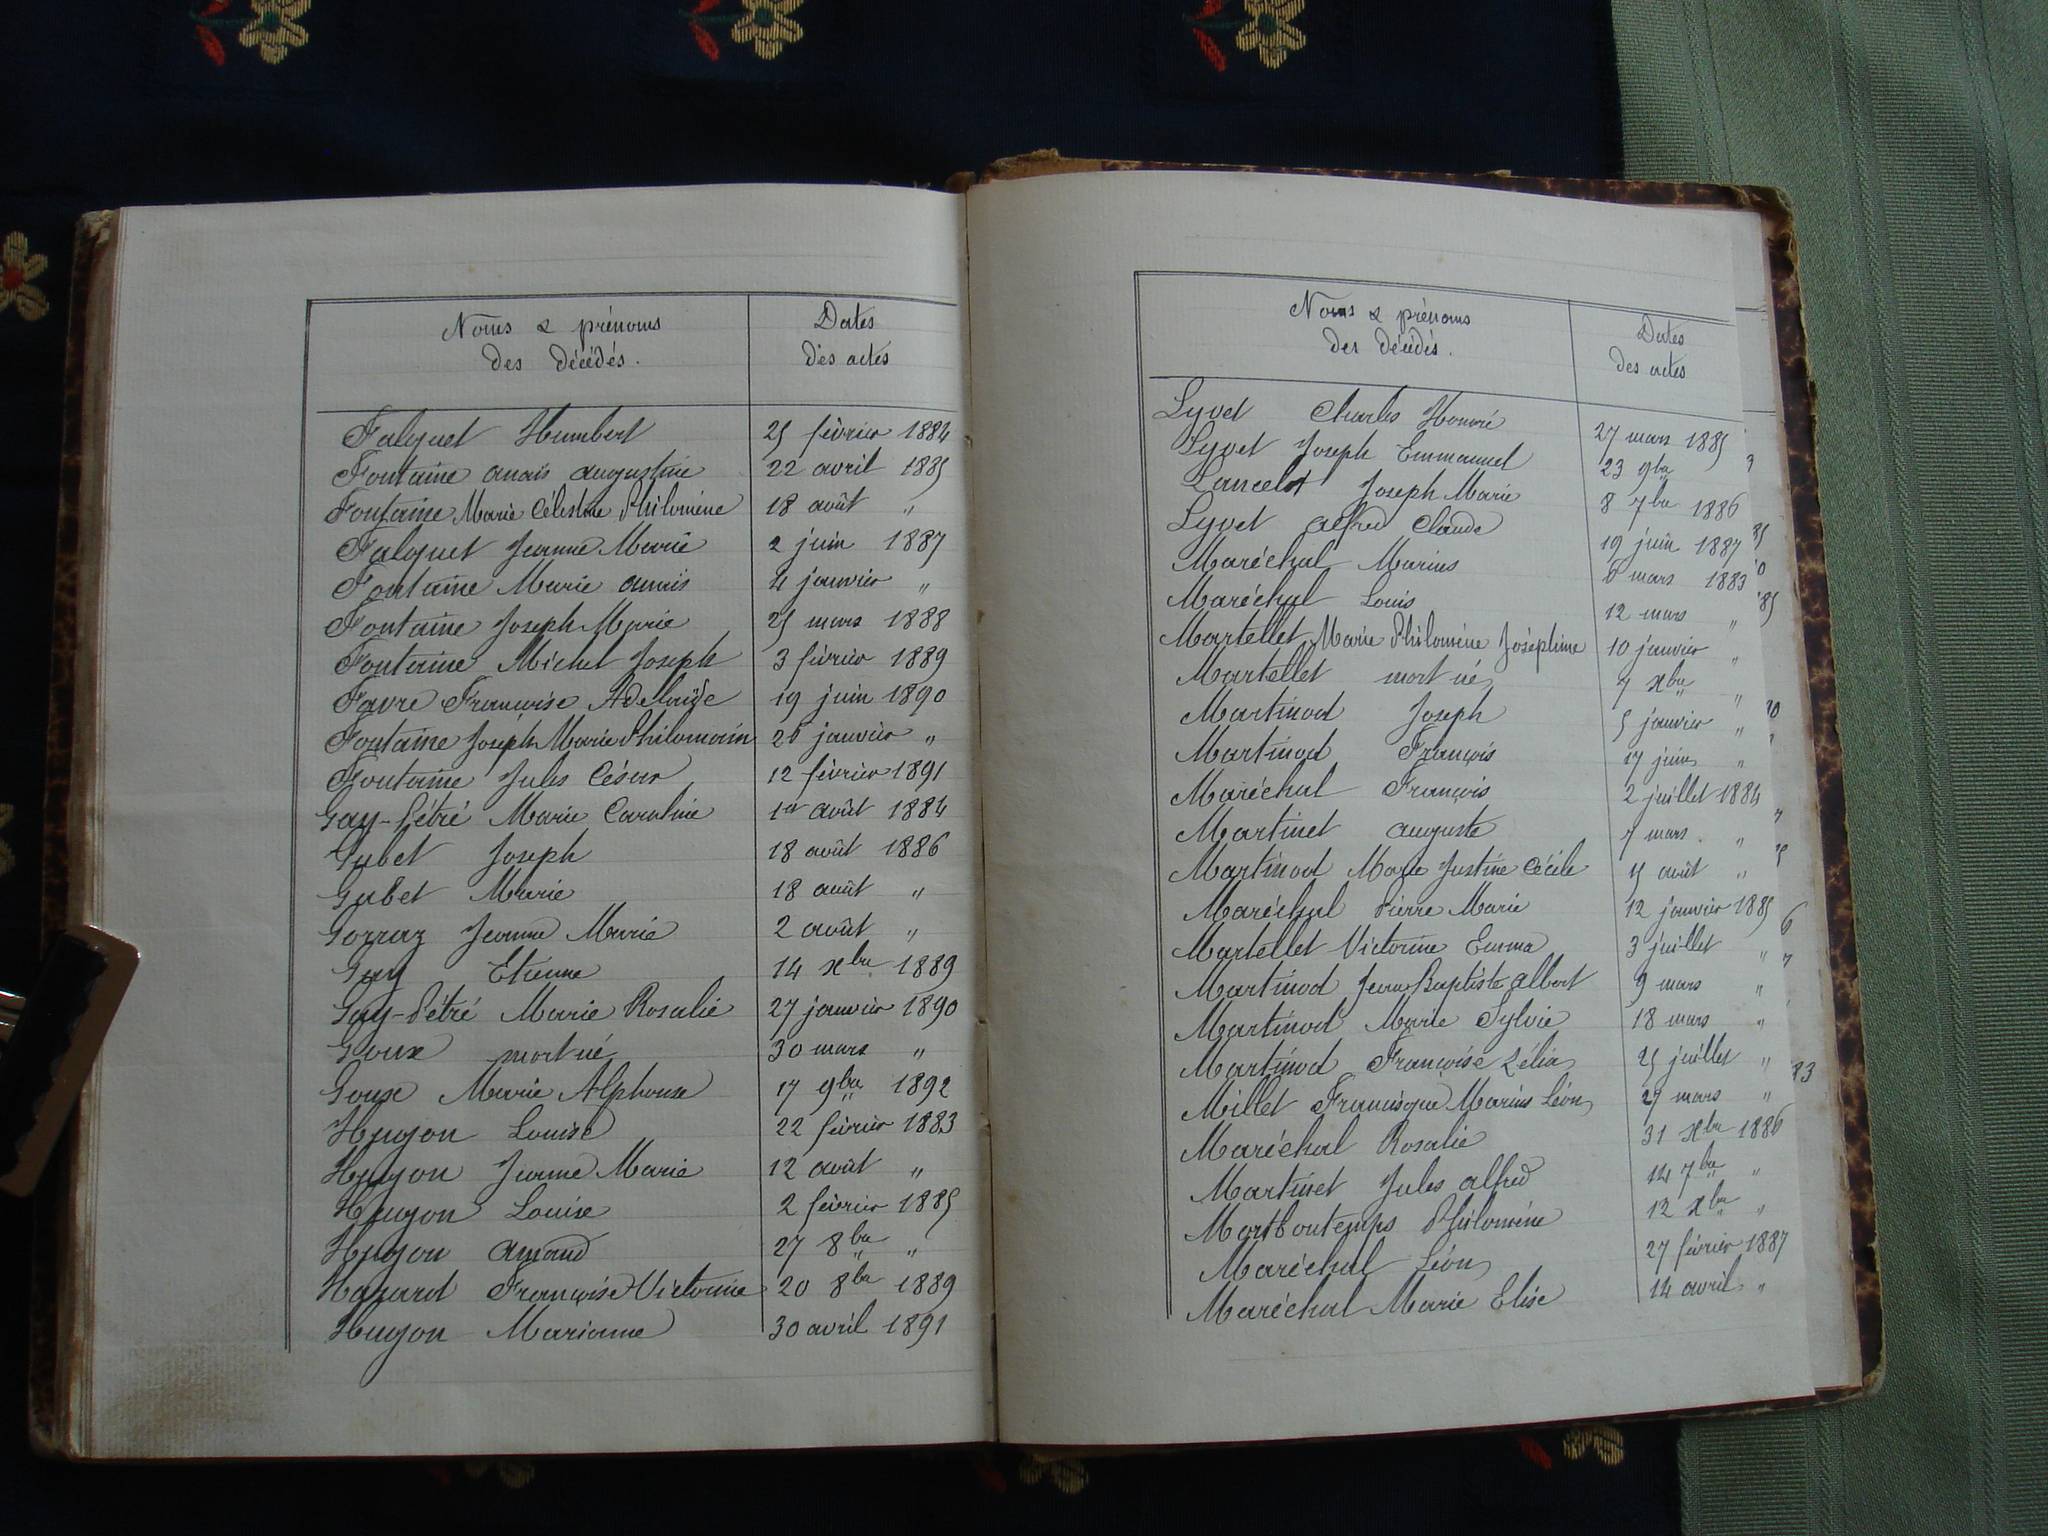 Noms & prénoms
des décédés.
Dates
des actes
Falquet Humbert 25 février 1884
Fontaine anais augustine 22 avril 1885
Fontaine Marie Célestine Philomène 18 août "
Falquet Jeanne Marie 2 juin 1887
Fontaine Marie anais 4 janvier "
Fontaine Joseph Marie 25 mars 1888
Fontaine Michel Joseph 3 février 1889
Favre Françoise Adelaïde 19 juin 1890
Fontaine Joseph Marie Philomain 26 janvier "
Fontaine Jules César 12 février 1891
Gay-Pétré Marie Caroline 1er août 1884
Gubet Joseph 18 août 1886
Gubet Marie 18 août "
Gorraz Jeanne Marie 2 août "
Gay Etienne 14 xbre 1889
Gay-Pétré Marie Rosalie 27 janvier 1890
Goux mort né 30 mars "
Goux Marie Alphonse 17 9bre 1892
Hugon Louise 22 février 1883
Hugon Jeanne Marie 12 août "
Hugon Louise 2 février 1885
Hugon Amand 27 8bre "
Hazard Françoise Victorine 20 8bre 1889
Hugon Marianne 30 avril 1891
Noms & prénoms
des décédés.
Dates
des actes
Lyvet Charles Honoré 27 mars 1885
Lyvet Joseph Emmanuel 23 9bre
Lancelot Joseph Marie 8 7bre 1886
Lyvet alfred Claude 19 juin 1887
Maréchal Marius 6 mars 1883
Maréchal Louis 12 mars "
Martellet Marie Philomène Joséphine 10 janvier "
Martellet mort né 7 xbre "
Martinod Joseph 5 janvier "
Martinod François 17 juin "
Maréchal François 2 juillet 1884
Martinet auguste 7 mars "
Martinod Marie Justine Cécile 15 août "
Maréchal Pierre Marie 12 janvier 1885
Martellet Victorine Emma 3 juillet "
Martinod Jean Baptiste albert 9 mars "
Martinod Marie Sylvie 18 mars "
Martinod Françoise Zélia 25 juillet "
Millet Francisque Marius Léon 27 mars "
Maréchal Rosalie 31 xbre 1886
Martinet Jules alfred 14 7bre "
Montbontemps Philomène 12 xbre "
Maréchal Léon 27 février 1887
Maréchal Marie Elise 14 avril "